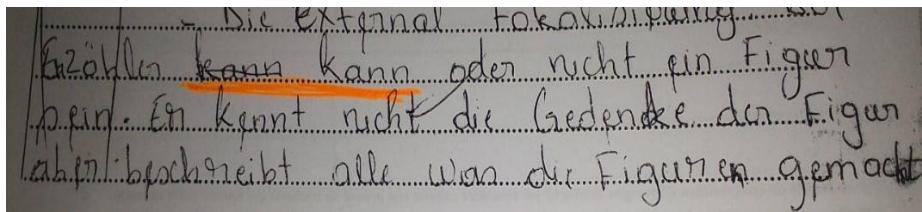 - Die external Fokalisierung der
Erzähler kann kann oder nicht ein Figur
sein. Er kennt nicht die Gedenke der Figur
aber beschreibt alle was die Figuren gemacht